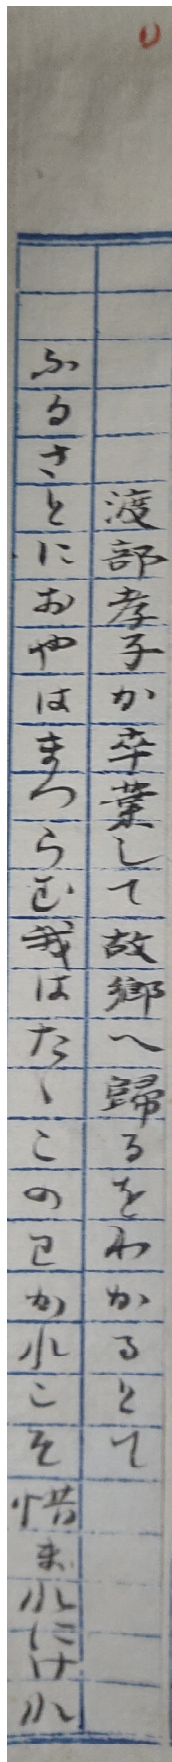 渡部孝子か卒業して故郷へ歸るをわかるとて
ふるさとにおやはまつらむ我はたゝこのわかれこそ惜まれにけれ